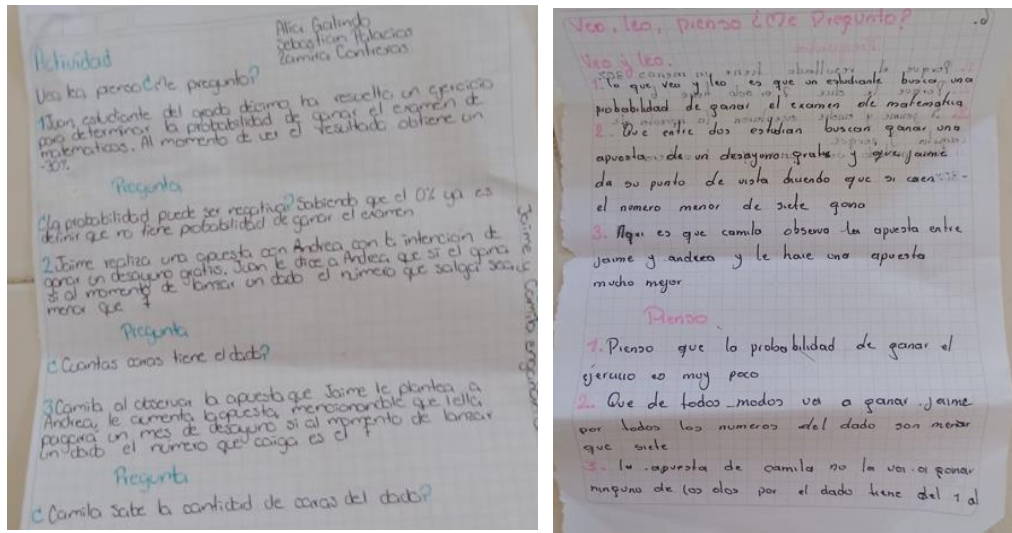 Alica Galindo
Sebastian Palacios
Zamira Contreras
Actividad
Veo leo pienso ¿me pregunto?
1. Juan, estudiante del grado décimo, ha resuelto un ejercicio
para determinar la probabilidad de ganar el examen de
matematicas. Al momento de ver el resultado obtiene un
-30%.
Pregunta
¿La probabilidad puede ser negativa? Sabiendo que el 0% ya es
definir que no tiene probabilidad de ganar el examen
2. Jaime realiza una apuesta con Andrea con la intencion de
ganar un desayuno gratis. Juan le dice a Andrea que si el gana
si al momento de lanzar un dado el número que salga sea
menor que 7
Pregunta
¿Cuantas caras tiene el dado?
3 Camila al observar la apuesta que Jaime le plantea a
Andrea, le aumenta la apuesta, mencionandole que
pagará un mes de desayuno si al momento de lanzar
un dado el número que caiga es el 7
Pregunta
¿Camila sabe la cantidad de caras del dado?
Jaime Camilo
Veo, leo, pienso ¿Me Pregunto?
Veo y leo.
1. lo que veo y leo es que un estudiante busca una
probabilidad de ganar el examen de matematica
2. Que entre dos estudian buscan ganar una
apuesta de un desayuno gratis y que jaime
da su punto de vista diciendo que si caen
el nomero menor de siete gana
3. Aqui es que camila observa la apuesta entre
jaime y andrea y le hace una apuesta
mucho mejor
Pienso
1. Pienso que la probabilidad de ganar el
ejercicio es muy poco
2. Que de todos modos va a ganar jaime
por todos los numeros del dado son menor
que siete
3. la apuesta de camila no la va a ganar
ninguno de los dos por el dado tiene del 1 al